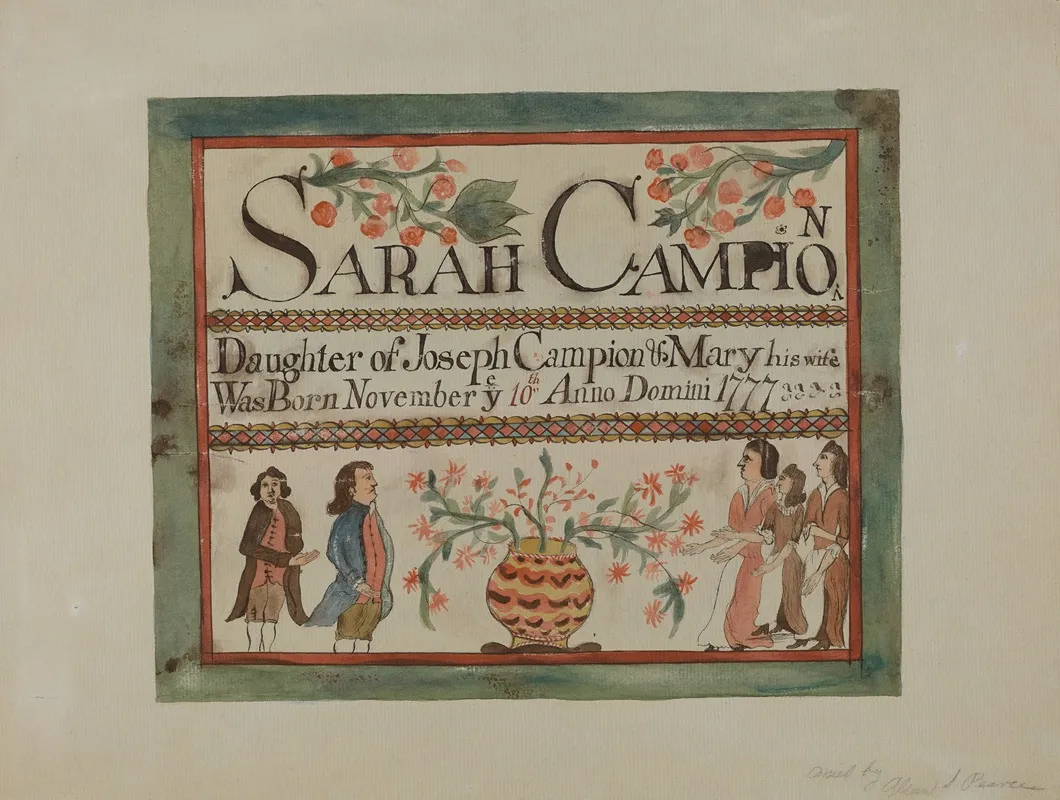 SARAH CAMPION
Daughter of Joseph Campion & Mary his wife
Was Born November yͤ 10th Anno Domini 1777
copied by